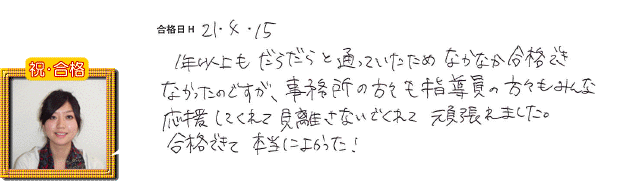 合格日 H 21.4.15
祝・合格
1年以上も だらだらと通っていたため なかなか合格でき
なかったのですが、事務所の方々も指導員の方々もみんな
応援してくれて 見離さないでくれて 頑張れました。
合格できて 本当によかった!